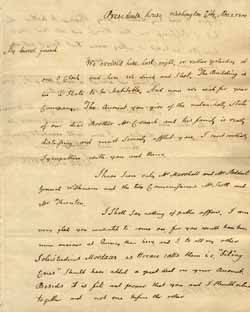 Presidents house, Washington City, Nov. 2 1800
My dearest friend
We arrived here last night, or rather yesterday at
one o Clock and here we dined and Slept. The Building is
in a State to be habitable. And now we wish for your
Company. The Account you give of the melancholly State
of our dear Brother Mr. Cranch and his family is really
distressing and must Severely afflict you. I most cordially
Sympathize with you and them.
I have Seen only Mr. Marshall and Mr. Stoddert
General Wilkinson and the two Commissioners Mr. Scott and
Mr. Thornton.
I Shall Say nothing of public affairs. I am
very glad you consented to come on for you would have been
more anxious at Quincy than here, and I to all my other
Solicitudines Mordaces as Horace calls them i.e. "biting
Cares" Should have added a great deal on your Account.
Besides it is fit and proper that you and I Should retire
together and not one before the other.